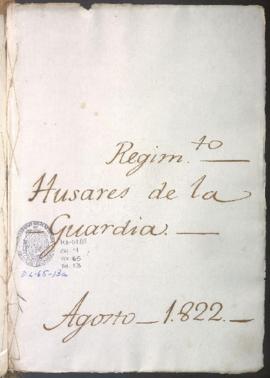 Regim.to —
Husares de la
Guardia. —
D.L-65-13a
Agosto — 1.822. —